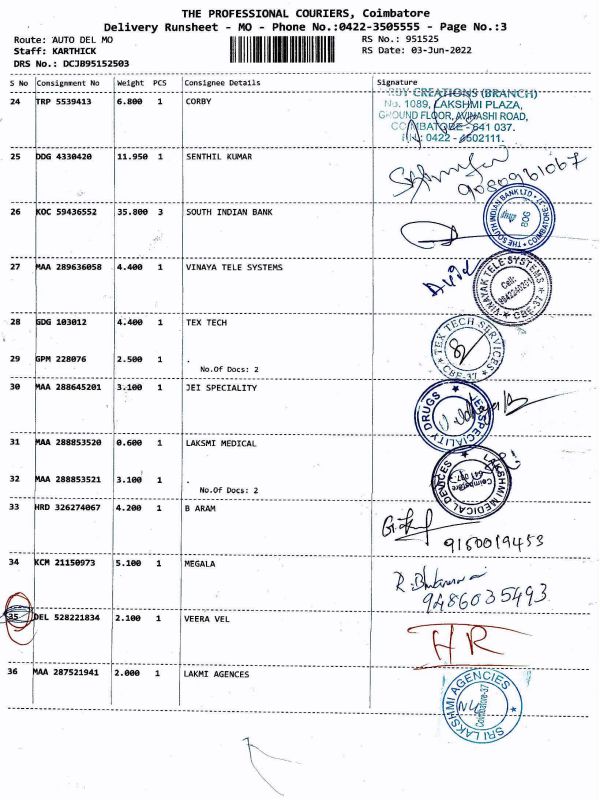 THE PROFESSIONAL COURIERS, Coimbatore
Delivery Runsheet - MO - Phone No.:0422-3505555 - Page No.:3
Route: AUTO DEL MO
RS No.: 951525
Staff: KARTHICK
RS Date: 03-Jun-2022
DRS No.: DCJB95152503
S No Consignment No Weight PCS Consignee Details Signature
24 TRP 5539413 6.800 1 CORBY
CREATIONS (BRANCH)
No. 1089, LAKSHMI PLAZA,
GROUND FLOOR, AVINASHI ROAD,
COIMBATORE - 641 037.
25 DDG 4330420 11.950 1 SENTHIL KUMAR
9080961067
26 KOC 59436552 35.800 3 SOUTH INDIAN BANK
THE SOUTH INDIAN BANK LTD
27 MAA 289636058 4.400 1 VINAYA TELE SYSTEMS
VINAYAK TELE SYSTEMS
Cell:
CBE-37
28 GDG 103012 4.400 1 TEX TECH
TEX TECH SERVICES
CBE-37
29 GPM 228076 2.500 1 .
No.Of Docs: 2
30 MAA 288645201 3.100 1 JEI SPECIALITY
JEI SPECIALITY DRUGS
31 MAA 288853520 0.600 1 LAKSMI MEDICAL
LAKSHMI MEDICAL DEVICES
Coimbatore
641 037
32 MAA 288853521 3.100 1 .
No.Of Docs: 2
33 HRD 326274067 4.200 1 B ARAM
9160019453
34 KCM 21150973 5.100 1 MEGALA
9486035493
35 DEL 528221834 2.100 1 VEERA VEL
HR
36 MAA 287521941 2.000 1 LAKMI AGENCES
SRI LAKSHMI AGENCIES
Coimbatore-37